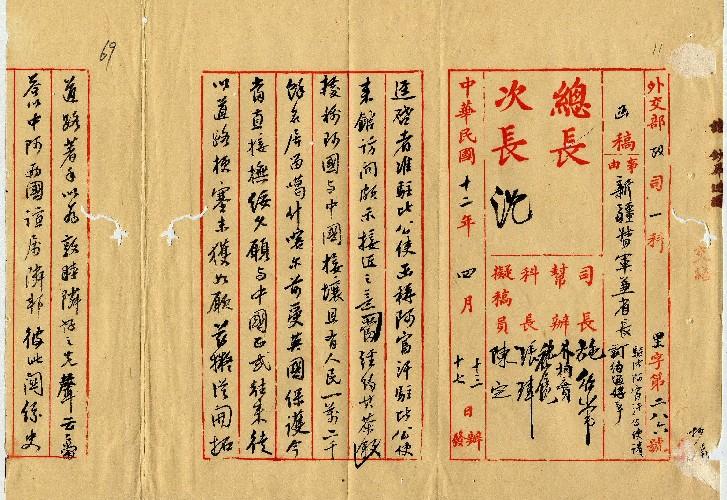 外交部政司一科
字第二八六號
函稿
事由
新疆督軍兼省長
訂約通好事
總長
次長 沈
司長 施紹常
幫辦
科長 張瑋
擬稿員 陳定
中華民國十二年四月十三日辦
十七日發
逕啓者准駐比公使函稱阿富汗駐比公使
來館訪問頗示接近之意經約共茶敍
據稱阿國與中國接壤且有人民一萬二千
餘名居留噶什喀尔前受英國保護今
當直接撫綏久願與中國正式往來徒
以道路梗塞未獲如願茲擬從開拓
道路著手以為敦睦隣好之先聲云爾
查以中阿兩國誼屬隣邦彼此關係史
69
11